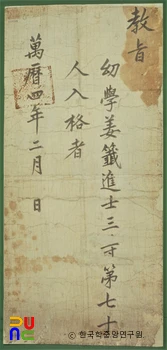 教旨
幼學姜籤進士三等第七十
人入格者
萬曆四年二月 日
PUNE
ⓒ 한국학중앙연구원